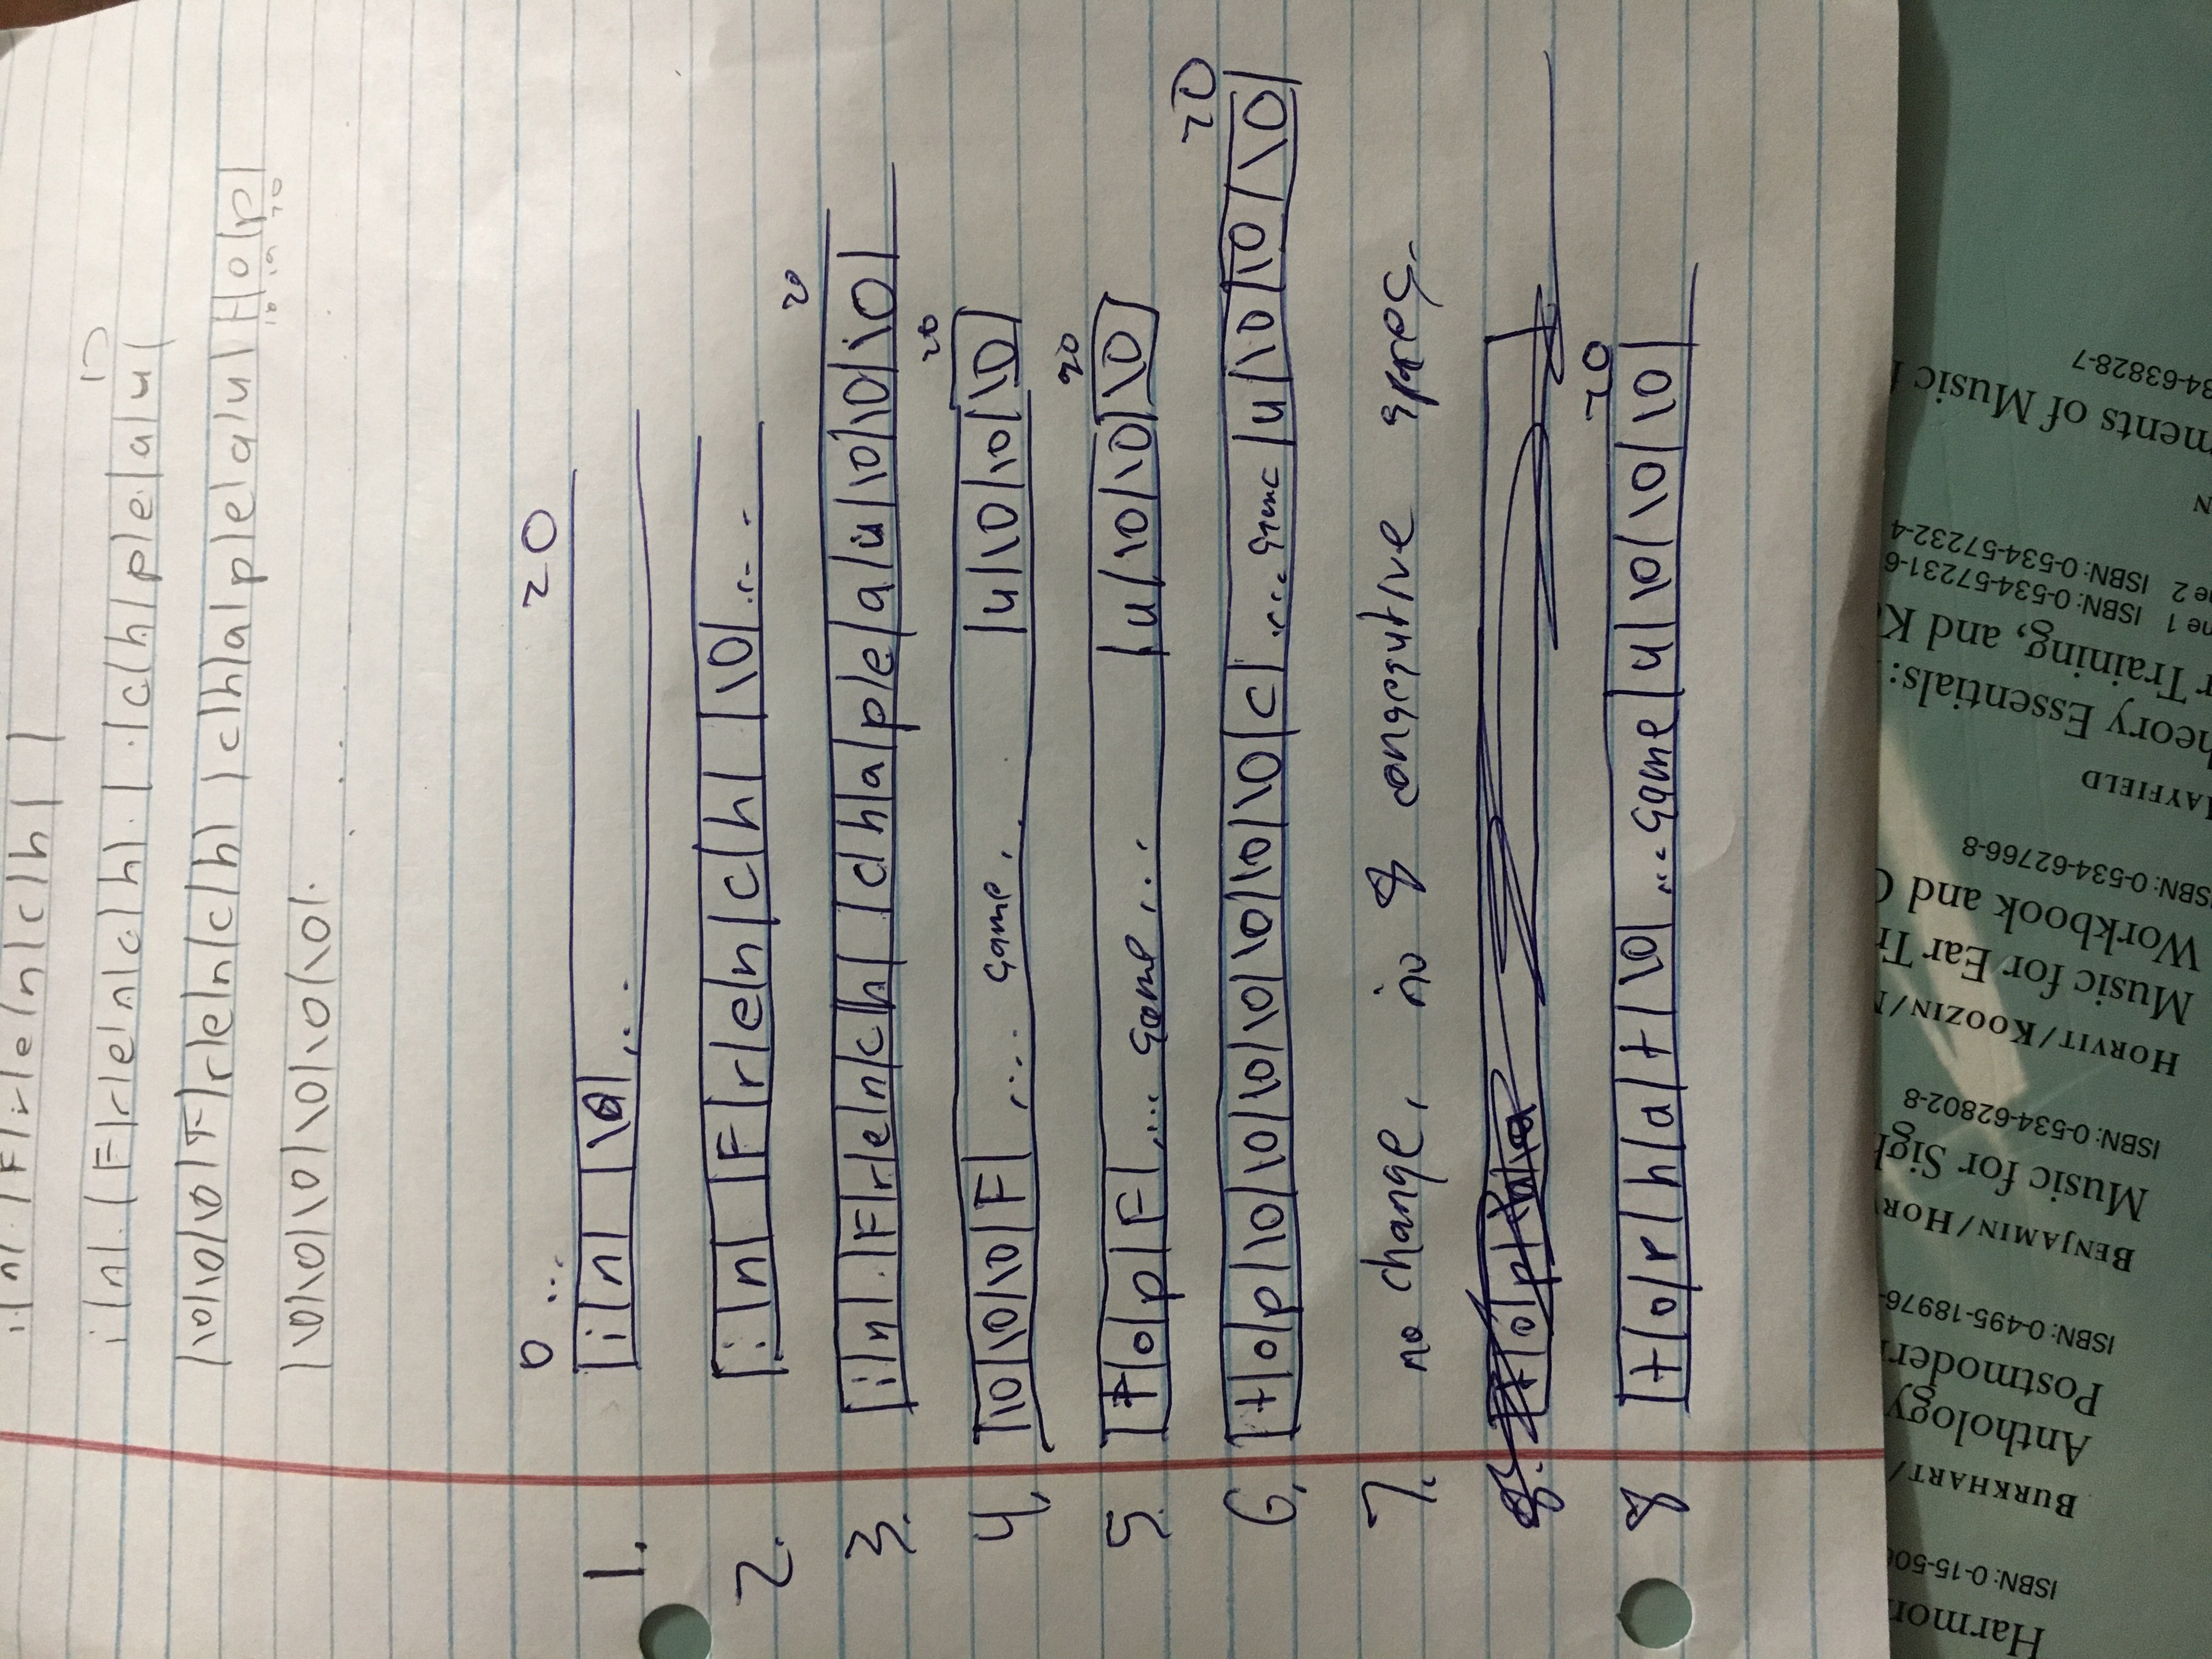 i|n| |F|r|e|n|c|h| |
17
i|n|.|F|r|e|n|c|h|.|.|c|h|p|e|a|u|
|\0|\0|\0|F|r|e|n|c|h| |c|h|a|p|e|a|u|t|o|p|
18 19 20
|\0|\0|\0|\0|\0|\0|.
0 ... 20
1. |i|n| |\0|...
2. |i|n| |F|r|e|n|c|h| |\0|...
20
3. |i|n|.|F|r|e|n|c|h| |c|h|a|p|e|a|u|\0|\0|\0|
20
4. |\0|\0|\0|F| .... same. |u|\0|\0|\0|
20
5. |t|o|p|F|.... same ... |u|\0|\0|\0|
20
6. |t|o|p|\0|\0|\0|\0|\0|\0|\0|c|.... same |u|\0|\0|\0|
7. no change, no 8 consecutive spaces.
8. |t|o|p|
20
8 |t|o|p|h|a|t|\0| ... same |u|\0|\0|\0|
Harmon
ISBN: 0-15-50
BURKHART/
Anthology
Postmodern
ISBN: 0-495-18976-
BENJAMIN/HOR
Music for Sigh
ISBN: 0-534-62802-8
HORVIT/KOOZIN/N
Music for Ear Tr
Workbook and C
ISBN: 0-534-62766-8
MAYFIELD
heory Essentials:
r Training, and K
ne 1 ISBN: 0-534-57231-6
ne 2 ISBN: 0-534-57232-4
N
ments of Music
34-63828-7